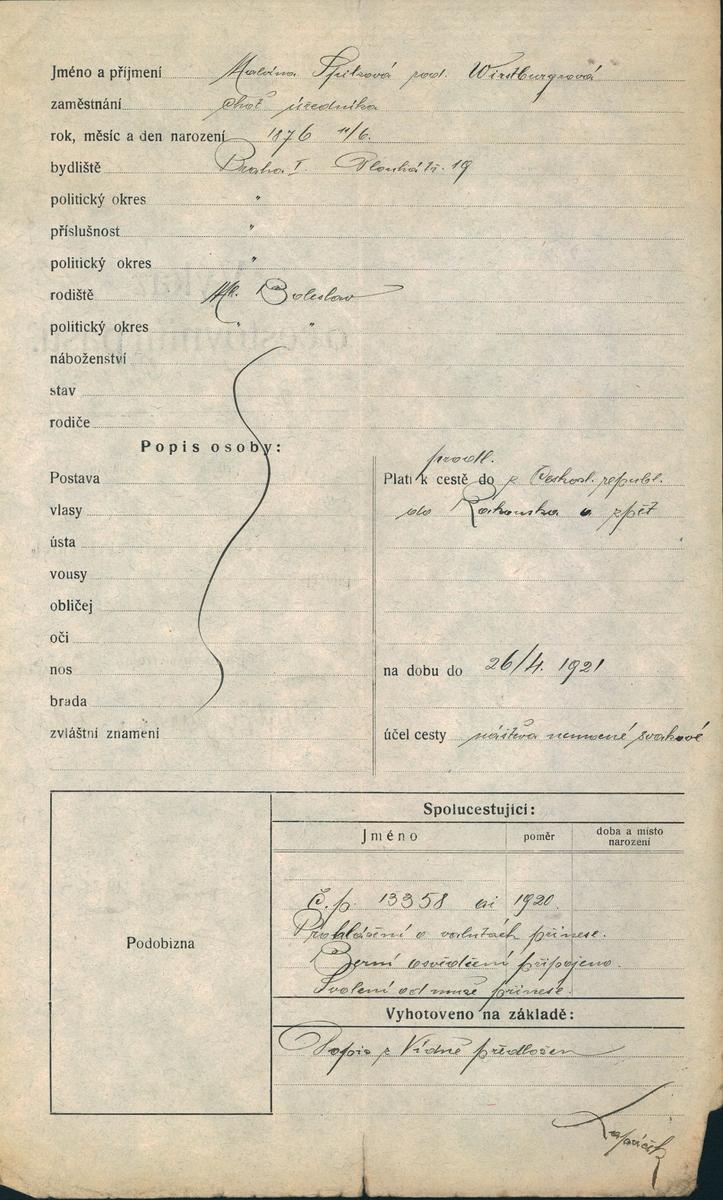 Jméno a příjmení Malvina Spitzová rod. Wirtburgrová
zaměstnání choť úředníka
rok, měsíc a den narození 1876 11/6.
bydliště Praha I. Dlouhá tř. 19
politický okres "
příslušnost "
politický okres "
rodiště Ml. Boleslav
politický okres " "
náboženství
stav
rodiče
Popis osoby:
Postava
vlasy
ústa
vousy
obličej
oči
nos
brada
zvláštní znamení
prodl.
Platí k cestě do z Českosl. republ.
do Rakouska a zpět
na dobu do 26/4. 1921
účel cesty návštěva nemocné švakrové
Podobizna
Spolucestující:
Jméno poměr doba a místo narození
Č.p. 13358 ai 1920.
Prohlášení o valutách přinese.
Berní osvědčení připojeno.
Svolení od muže přinese.
Vyhotoveno na základě:
Dopis z Vídně předložen